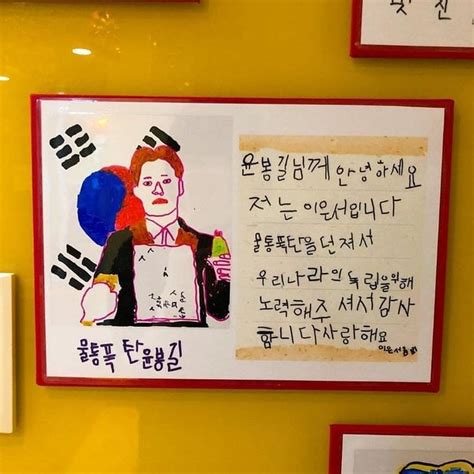 물통폭탄 윤봉길
윤봉길님께 안녕하세요
저는 이은서입니다
물통폭탄을던져서
우리나라의 독립을위해
노력해주셔서감사
합니다사랑해요
이은서